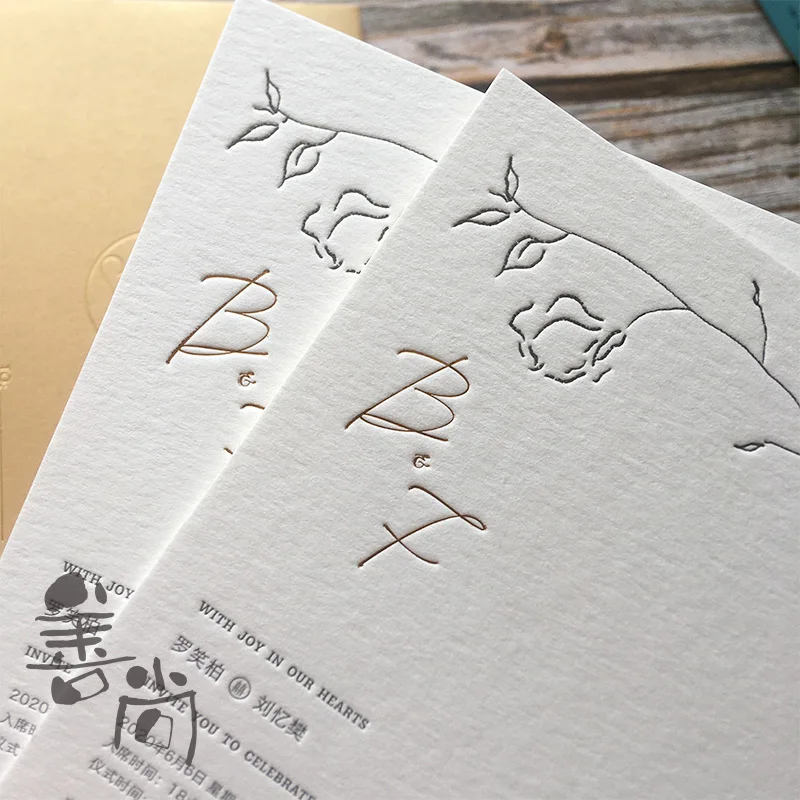 B
&
WITH JOY
罗笑柏
INVITE
2020
入席时
仪式
B
&
WITH JOY IN OUR HEARTS
罗笑柏 囍 刘忆樊
INVITE YOU TO CELEBRATE
2020年6月6日 星期
入席时间：18:
仪式时间：
善尚